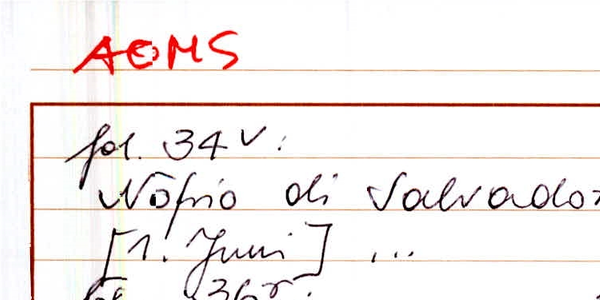 AOMS
fol. 34v:
Nofrio di Salvador
[1. Juni] ...
fol. 36r: